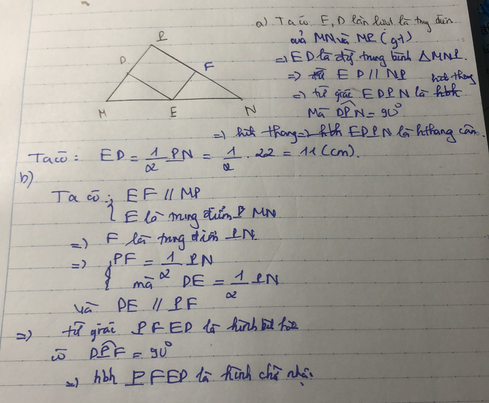 a) Ta có E, D lần lượt là trung điểm
của MN và MP (gt)
=> ED là đg trung bình △MNP.
=> ED // NP
=> tứ giác EDPN là hbh hình thang
Mà DPN = 90°
=> hình thang EDPN là hthang cân.
P
D
F
M
E
N
Ta có: ED = 1/2 PN = 1/2 . 22 = 11 (cm).
b)
Ta có: EF // MP
E là trung điểm MN
=> F là trung điểm PN
=> PF = 1/2 PN
mà DE = 1/2 PN
và DE // PF
=> tứ giác PFED là hình bh
có DPF = 90°
=> hbh PFED là hình chữ nhật.